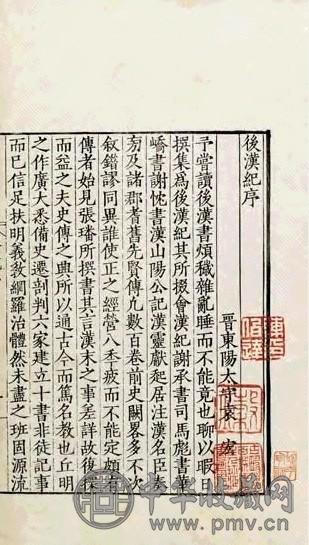 後漢紀序
晉東陽太守袁宏
予嘗讀後漢書煩穢雜亂睡而不能竟也聊以暇日
撰集為後漢紀其所掇會漢紀謝承書司馬彪書華
嶠書謝忱書漢山陽公記漢靈獻起居注漢名臣奏
旁及諸郡耆舊先賢傳凡數百卷前史闕畧多不次
叙錯謬同異誰使正之經營八秊疲而不能定頗有
傳者始見張璠所撰書其言漢末之事差詳故復探
而益之夫史傳之典所以通古今而篤名教也丘明
之作廣大悉備史遷剖判六家建立十書非徒記事
而已信足扶明義教網羅治體然未盡之班固源流
中华收藏网
www.pmv.cn